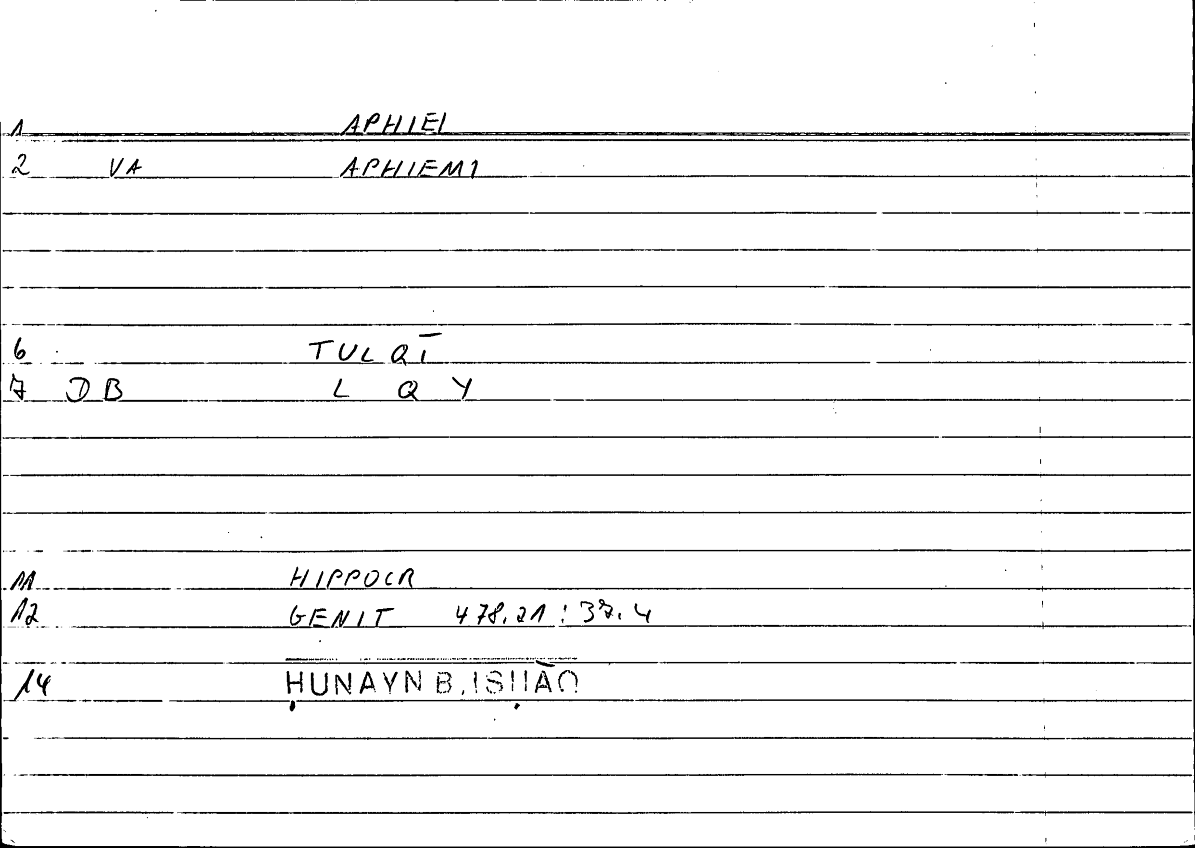 1 APHIEI
2 VA APHIEMI
6 TULQĪ
7 DB L Q Y
11 HIPPOCR
12 GENIT 478.21 : 37.4
14 ḤUNAYN B. ISḤĀQ